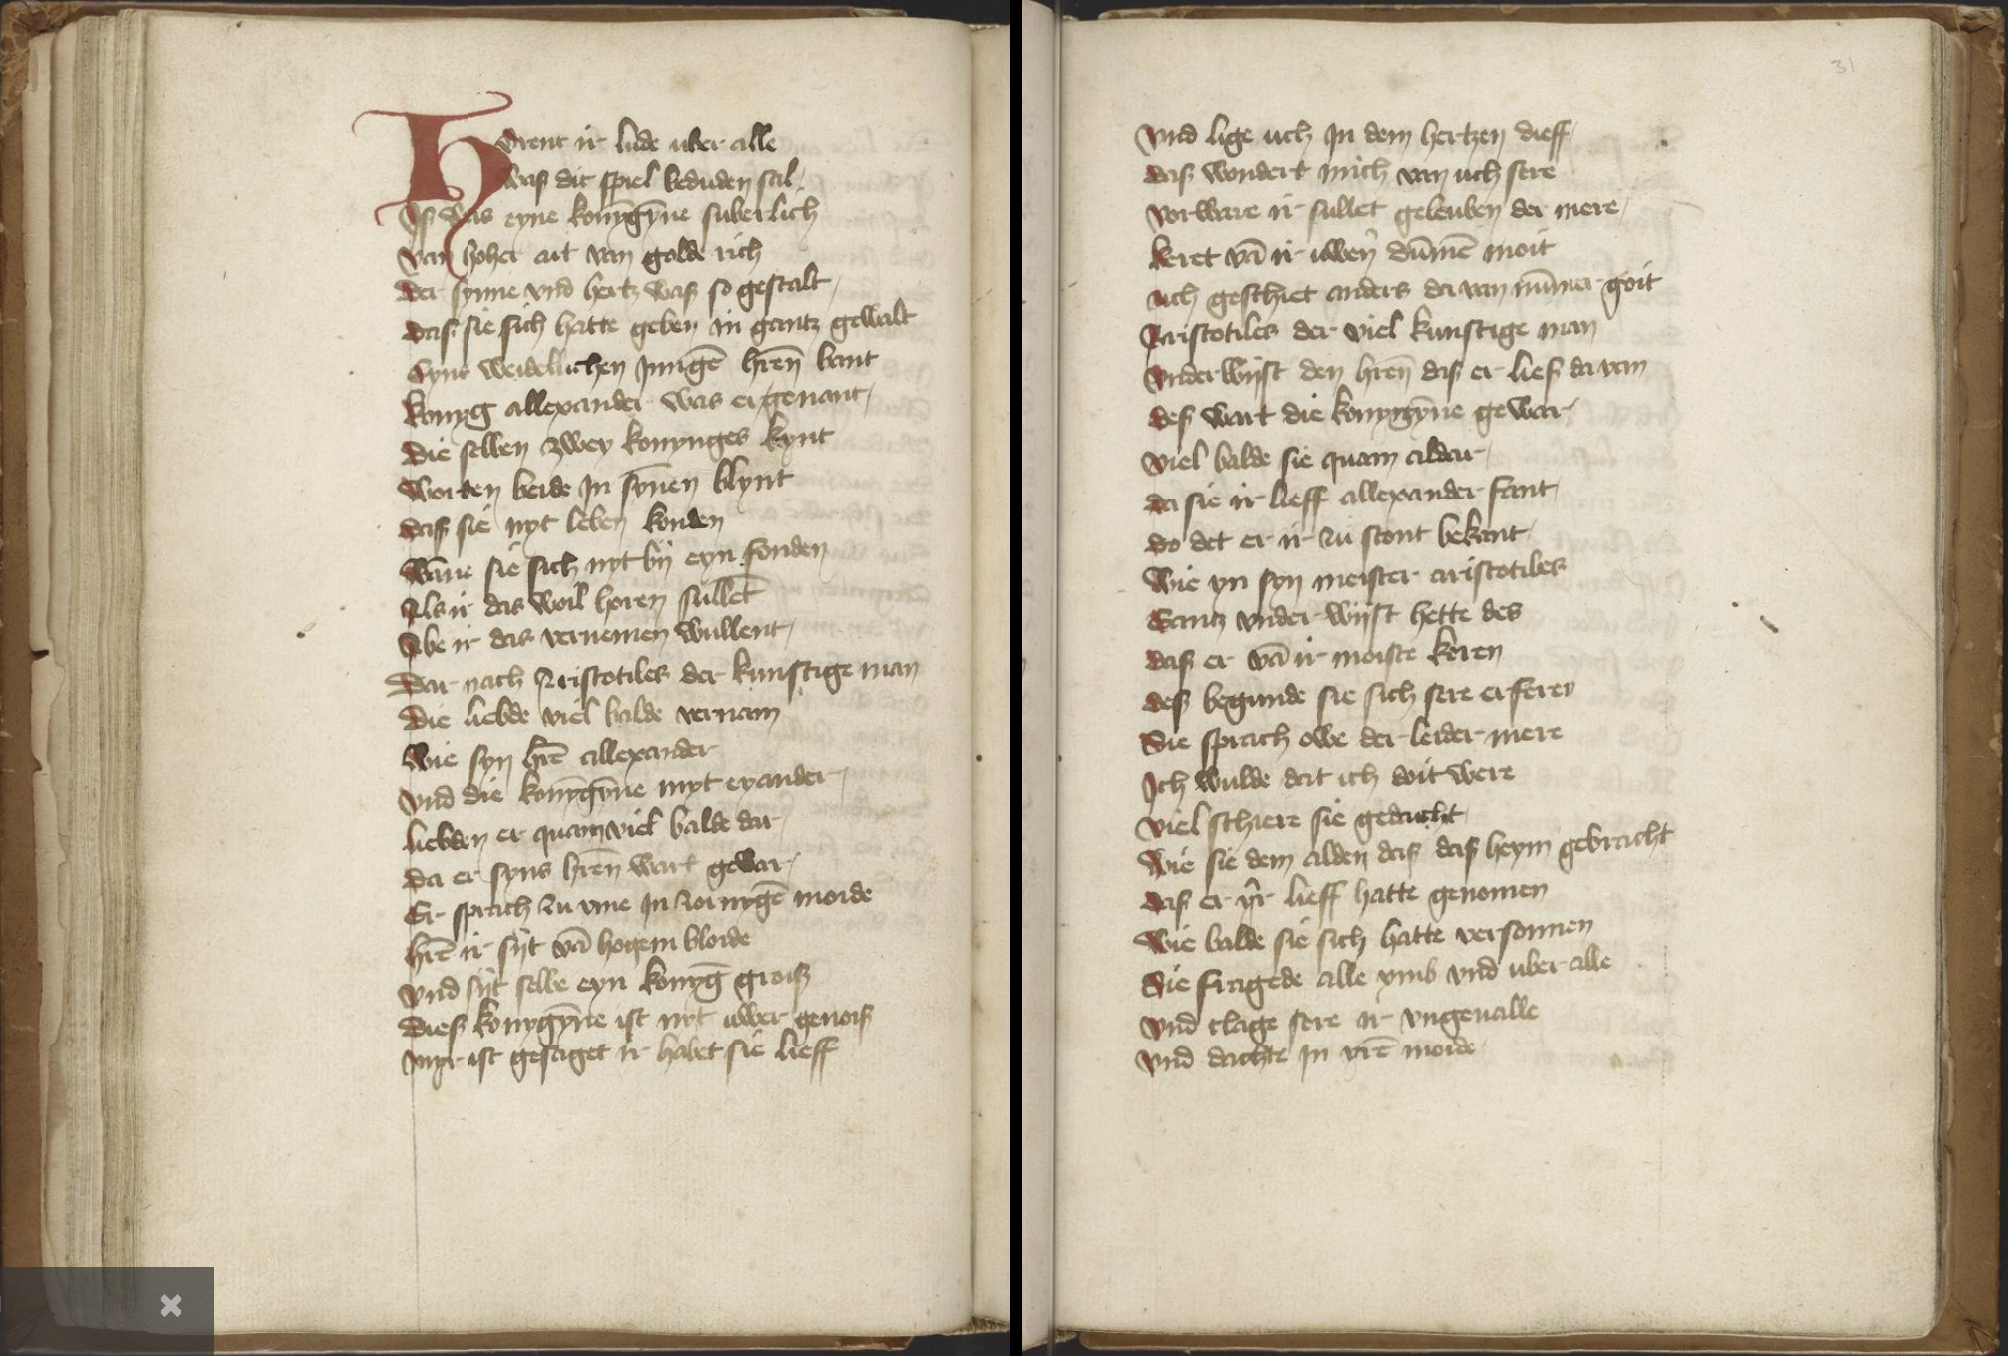 Horent ir lude uber alle
was dit spiel beduden sal
Iß was eyne konȳgȳne suberlich
van hoher art van golde rich
der synne vnd hertz waß so gestalt
daß sie sich hatte geben in gantz gewalt
Eyns weidelichen Jungē hrēn bant
konyg allexander was er genant
die selben zwey konynges kynt
worten beide In sȳnen blynt
daß sie nyt leben konden
wāne sie sich nyt by eyn fonden
Als ir das woil horen sullēt
Abe ir das vernemen wullent
Dar nach Aristotiles der kunstige man
die liebde viel balde vernam
wie syn hrē allexander
vnd die konȳgȳne myt eyander
liebden er quam viel balde dar
da er syns hrēn wart gewar
Er sprach zu yme In zornygē moide
hrē ir syt vā hogem bloide
vnd syt selbe eyn konyḡ groiß
dieß konygȳne ist nyt uwer genoiß
myr ist gesaget ir habet sie lieff
31
vnd lige uch In dem hertzen dieff
daß wondert mich van uch sere
vorware ir sullet geleuben der mere
keret vā ir uwen dūmē moit
uch geschiet anders da van nūmer goit
Aristotiles der viel kunstige man
vnderwijst den hrēn daß er ließ da van
deß wart die konygȳne gewar
viel balde sie quam aldar
da sie ir lieff allexander fant
do det er ir zu stont bekant
wie yn syn meister aristotiles
Gantz vnder wijst hette des
daß er vā ir moiste keren
deß begunde sie sich sere erferen
Sie sprach owe der leider mere
Ich wulde dat ich doit were
viel schiere sie gedacht
wie sie dem alden daß daß heym gebracht
daß er yr lieff hatte genomen
wie balde sie sich hatte versonnen
Sie fragede alle vmb vnd uber alle
vnd clage sere ir vngeualle
vnd dachte in yrē moide